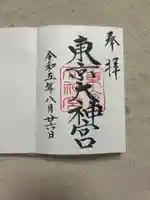 奉拝
東京大神宮
令和五年八月廿六日